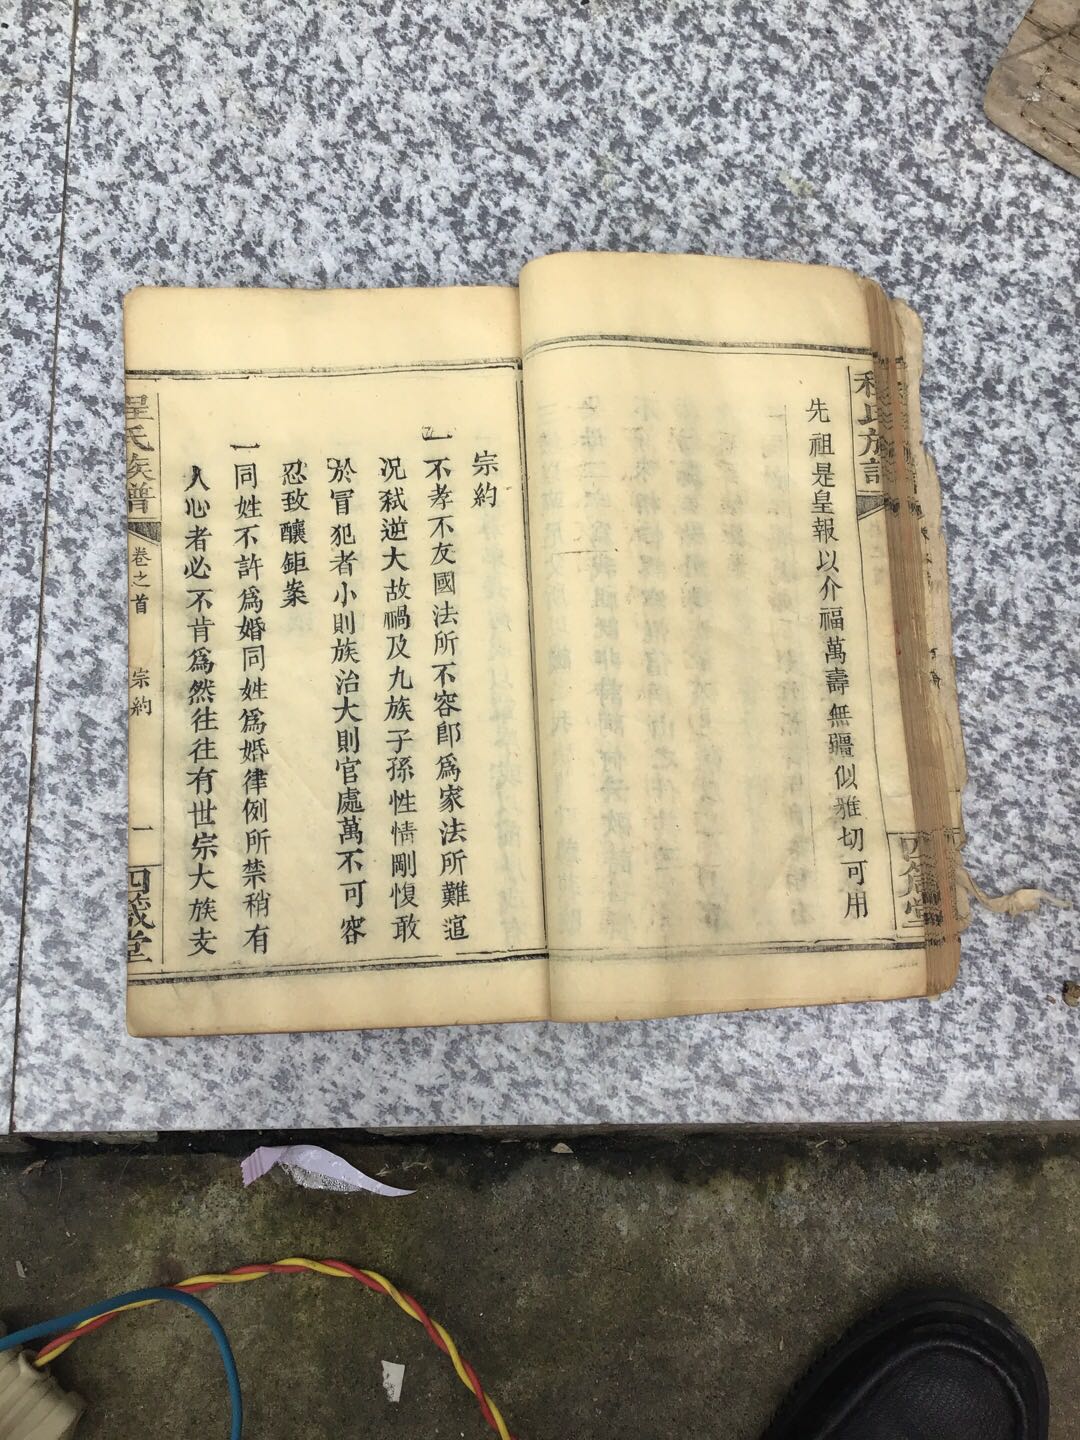 先祖是皇報以介福萬壽無疆似雅切可用
宗約
一不孝不友國法所不容郎爲家法所難逭
況弒逆大故禍及九族子孫性情剛愎敢
於冒犯者小則族治大則官處萬不可容
忍致釀鉅案
一同姓不許爲婚同姓爲婚律例所禁稍有
人心者必不肯爲然往往有世宗大族支
程氏族譜
卷之首
宗約
一
四箴堂